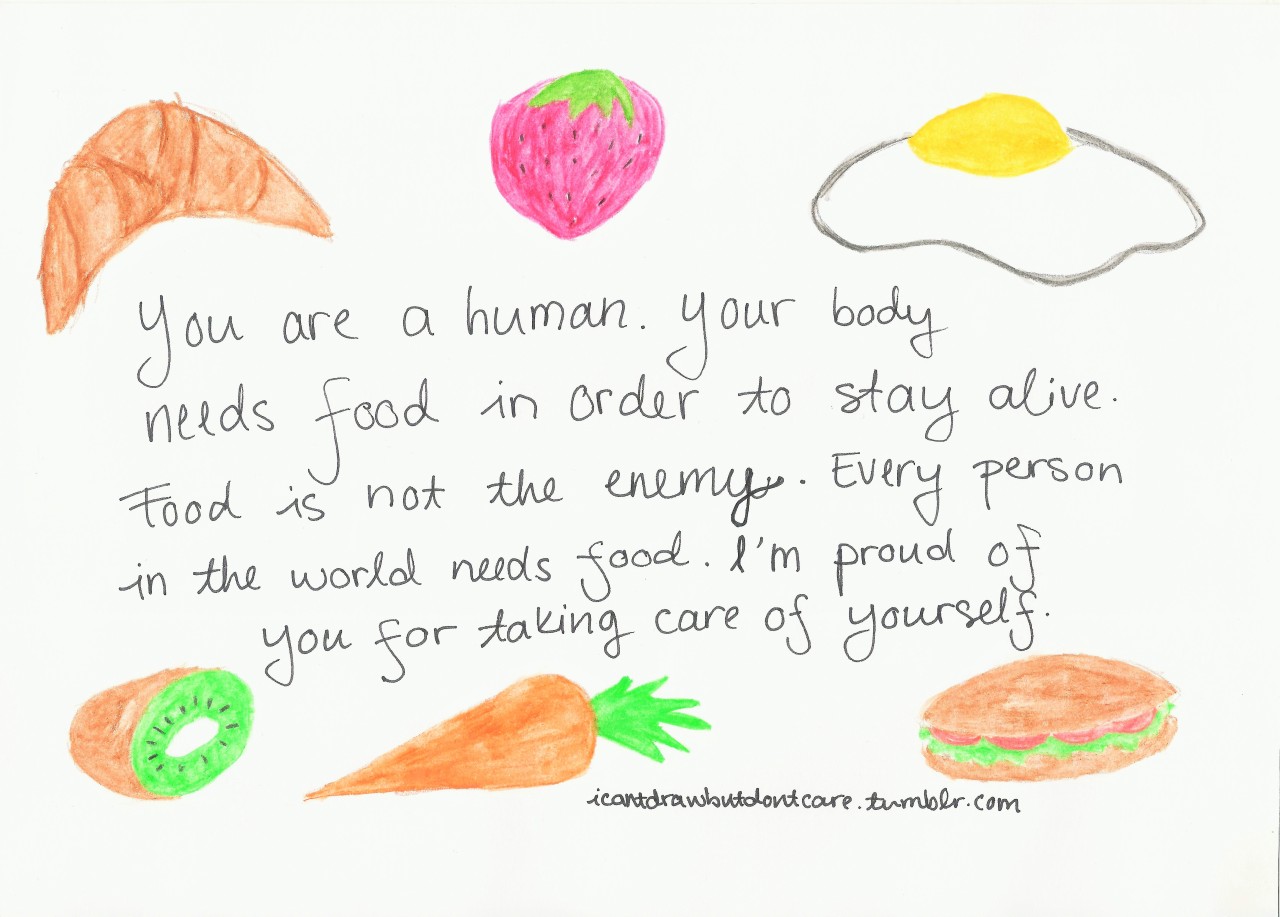 You are a human. Your body
needs food in order to stay alive.
Food is not the enemy. Every person
in the world needs food. I'm proud of
you for taking care of yourself.
icantdrawbutdontcare.tumblr.com